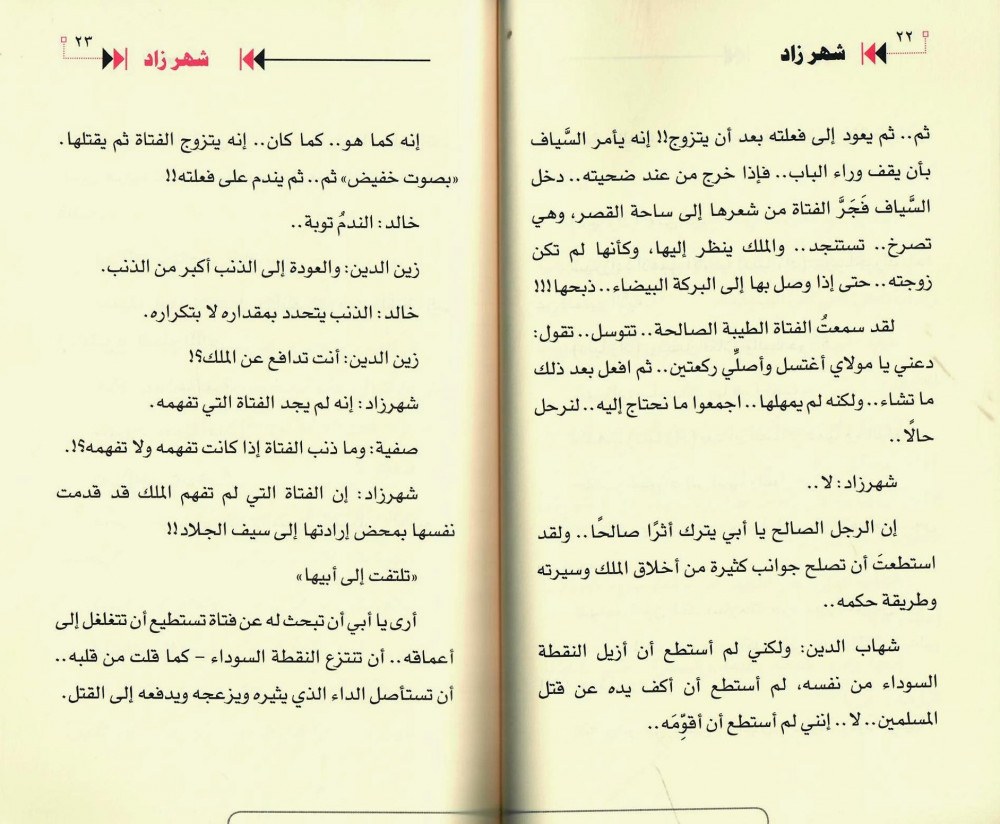 ٢٢
شهرزاد
ثم.. ثم يعود إلى فعلته بعد أن يتزوج!! إنه يأمر السَّياف
بأن يقف وراء الباب.. فإذا خرج من عند ضحيته.. دخل
السَّياف فَجَرَّ الفتاة من شعرها إلى ساحة القصر، وهي
تصرخ.. تستنجد.. والملك ينظر إليها، وكأنها لم تكن
زوجته.. حتى إذا وصل بها إلى البركة البيضاء.. ذبحها!!!
لقد سمعتُ الفتاة الطيبة الصالحة.. تتوسل.. تقول:
دعني يا مولاي أغتسل وأصلِّي ركعتين.. ثم افعل بعد ذلك
ما تشاء.. ولكنه لم يمهلها.. اجمعوا ما نحتاج إليه.. لنرحل
حالًا..
شهرزاد: لا..
إن الرجل الصالح يا أبي يترك أثرًا صالحًا.. ولقد
استطعتَ أن تصلح جوانب كثيرة من أخلاق الملك وسيرته
وطريقة حكمه..
شهاب الدين: ولكني لم أستطع أن أزيل النقطة
السوداء من نفسه، لم أستطع أن أكف يده عن قتل
المسلمين.. لا.. إنني لم أستطع أن أقوِّمَه..
٢٣
شهرزاد
إنه كما هو.. كما كان.. إنه يتزوج الفتاة ثم يقتلها.
«بصوت خفيض» ثم.. ثم يندم على فعلته!!
خالد: الندمُ توبة..
زين الدين: والعودة إلى الذنب أكبر من الذنب.
خالد: الذنب يتحدد بمقداره لا بتكراره.
زين الدين: أنت تدافع عن الملك؟!
شهرزاد: إنه لم يجد الفتاة التي تفهمه.
صفية: وما ذنب الفتاة إذا كانت تفهمه ولا تفهمه؟!.
شهرزاد: إن الفتاة التي لم تفهم الملك قد قدمت
نفسها بمحض إرادتها إلى سيف الجلاد!!
«تلتفت إلى أبيها»
أرى يا أبي أن تبحث له عن فتاة تستطيع أن تتغلغل إلى
أعماقه.. أن تنتزع النقطة السوداء – كما قلت من قلبه..
أن تستأصل الداء الذي يثيره ويزعجه ويدفعه إلى القتل.